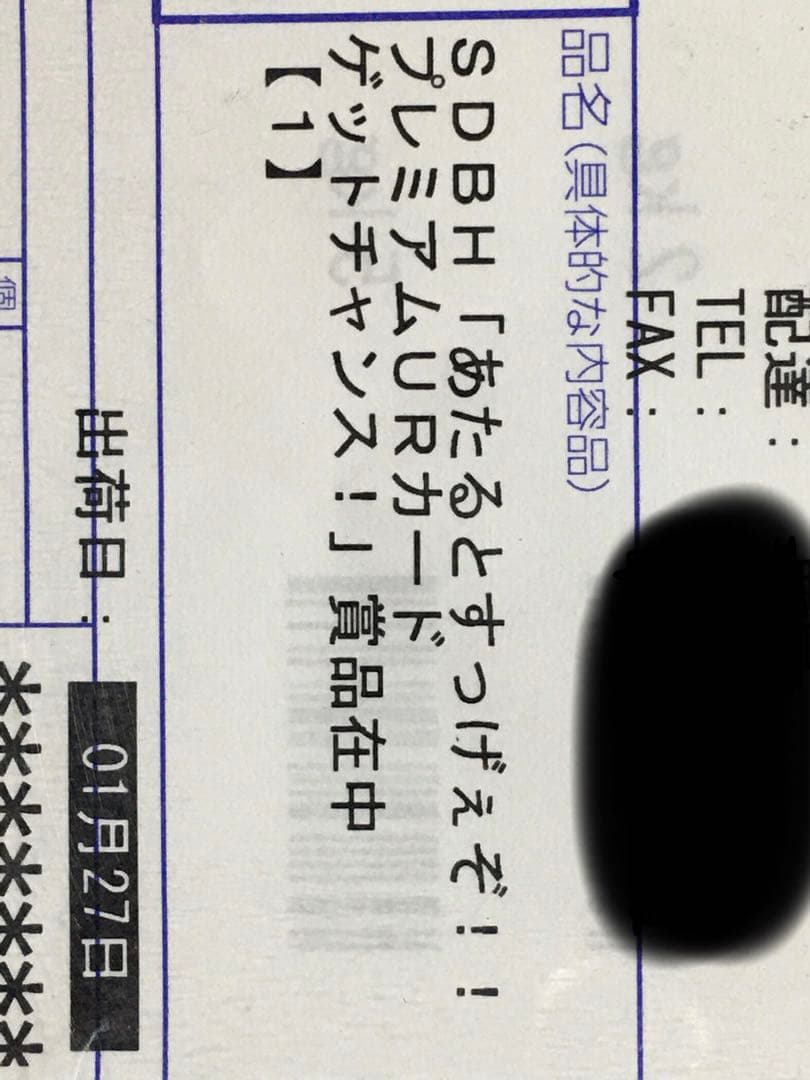 配達：
TEL：
FAX：
品名（具体的な内容品）
ＳＤＢＨ「あたるとすっげぇぞ！！
プレミアムＵＲカード
ゲットチャンス！」賞品在中
【１】
出荷日： 01月27日
個
*******